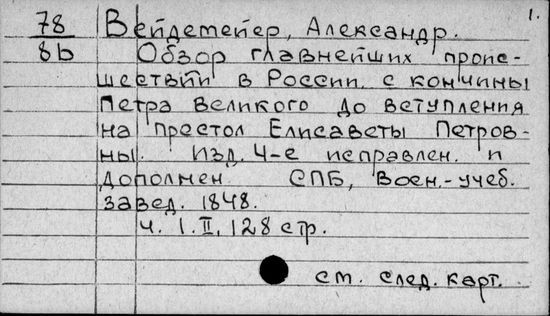 1.
78 Вейдемейер, Александр.
8b Обзор главнейших проис-
шествий в России с кончины
Петра Великого до вступления
на престол Елисаветы Петров-
ны. Изд. 4-е исправлен. и
дополнен СПБ, Воен.-учеб.
завед. 1848.
ч. I. II, 128 стр.
см. след. карт.